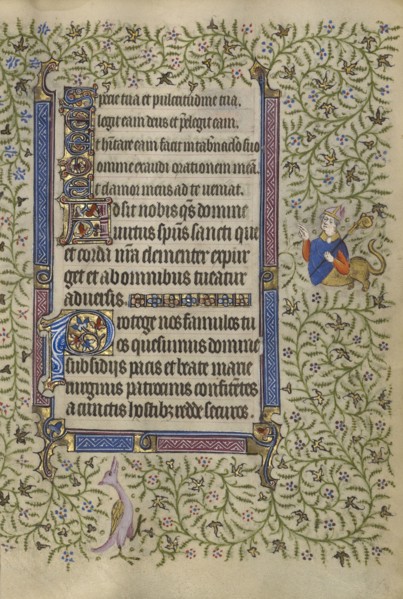 Specie tua et pulcritudine tua.
Elegit eam deus et p̄elegit eam.
Et h̄itare eam facit in tab̄naclo suo
Domine exaudi orationem meā.
Et clamor meus ad te veniat.
Adsit nobis q̄s domine
virtus sp̄us sancti que
et corda nr̄a clementer expur
get et ab omnibus tueatur
adversis.
Protege nos famulos tu
os quesumus domine
subsidijs pacis et beate marie
virginis patrocinijs confidētes
a cunctis hostib; redde securos.